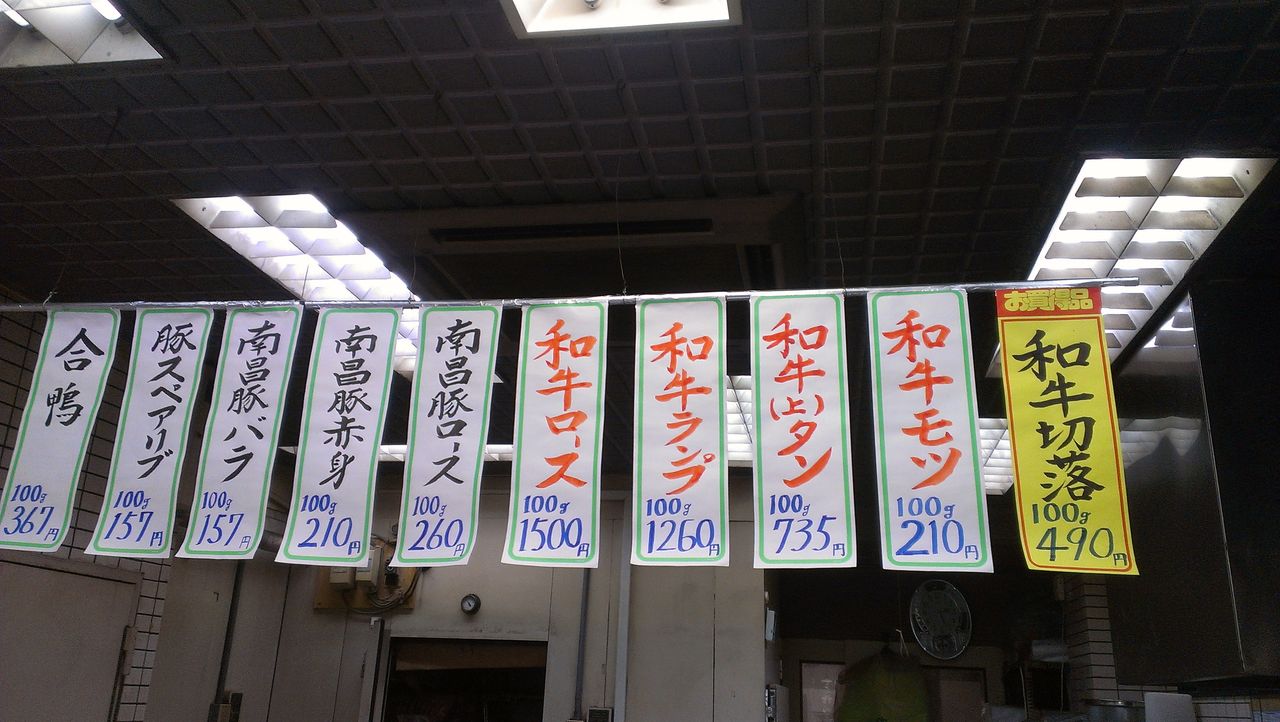 お買得品
和牛切落
100g
490円
和牛モツ
100g
210円
和牛(上)タン
100g
735円
和牛ランプ
100g
1260円
和牛ロース
100g
1500円
南昌豚ロース
100g
260円
南昌豚赤身
100g
210円
南昌豚バラ
100g
157円
豚スペアリブ
100g
157円
合鴨
100g
367円